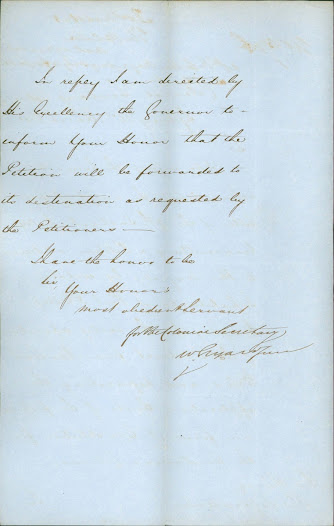 In reply I am directed by
His Excellency the Governor to
inform Your Honor that the
Petition will be forwarded to
its destination as requested by
the Petitioners —
I have the honor to be
Sir
Your Honor's
most obedient servant
for the Colonial Secretary